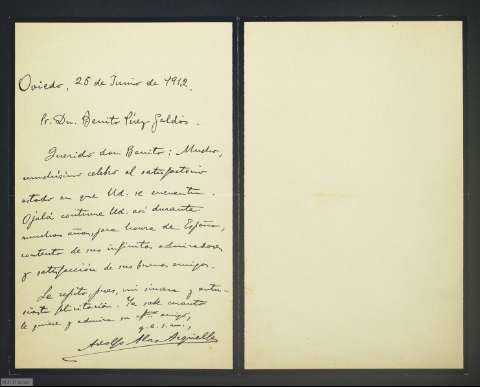 Oviedo, 25 de Junio de 1912.
Sr. Dn. Benito Pérez Galdós.
Querido don Benito: Mucho,
muchísimo celebro el satisfactorio
estado en que Ud. se encuentra.
Ojalá continúe Ud. así durante
muchos años, para honra de España,
contento de sus infinitos admiradores
y satisfacción de sus buenos amigos.
Le repito, pues, mi sincera y entu-
siasta felicitación. Ya sabe cuanto
le quiere y admira su amigo,
q. e. s. m.,
Adolfo Alas Argüelles